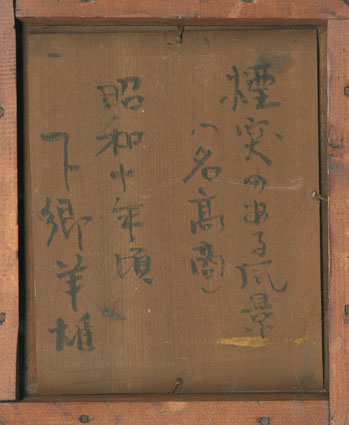 煙突のある風景
（名高商）
昭和十年頃
下郷羊雄